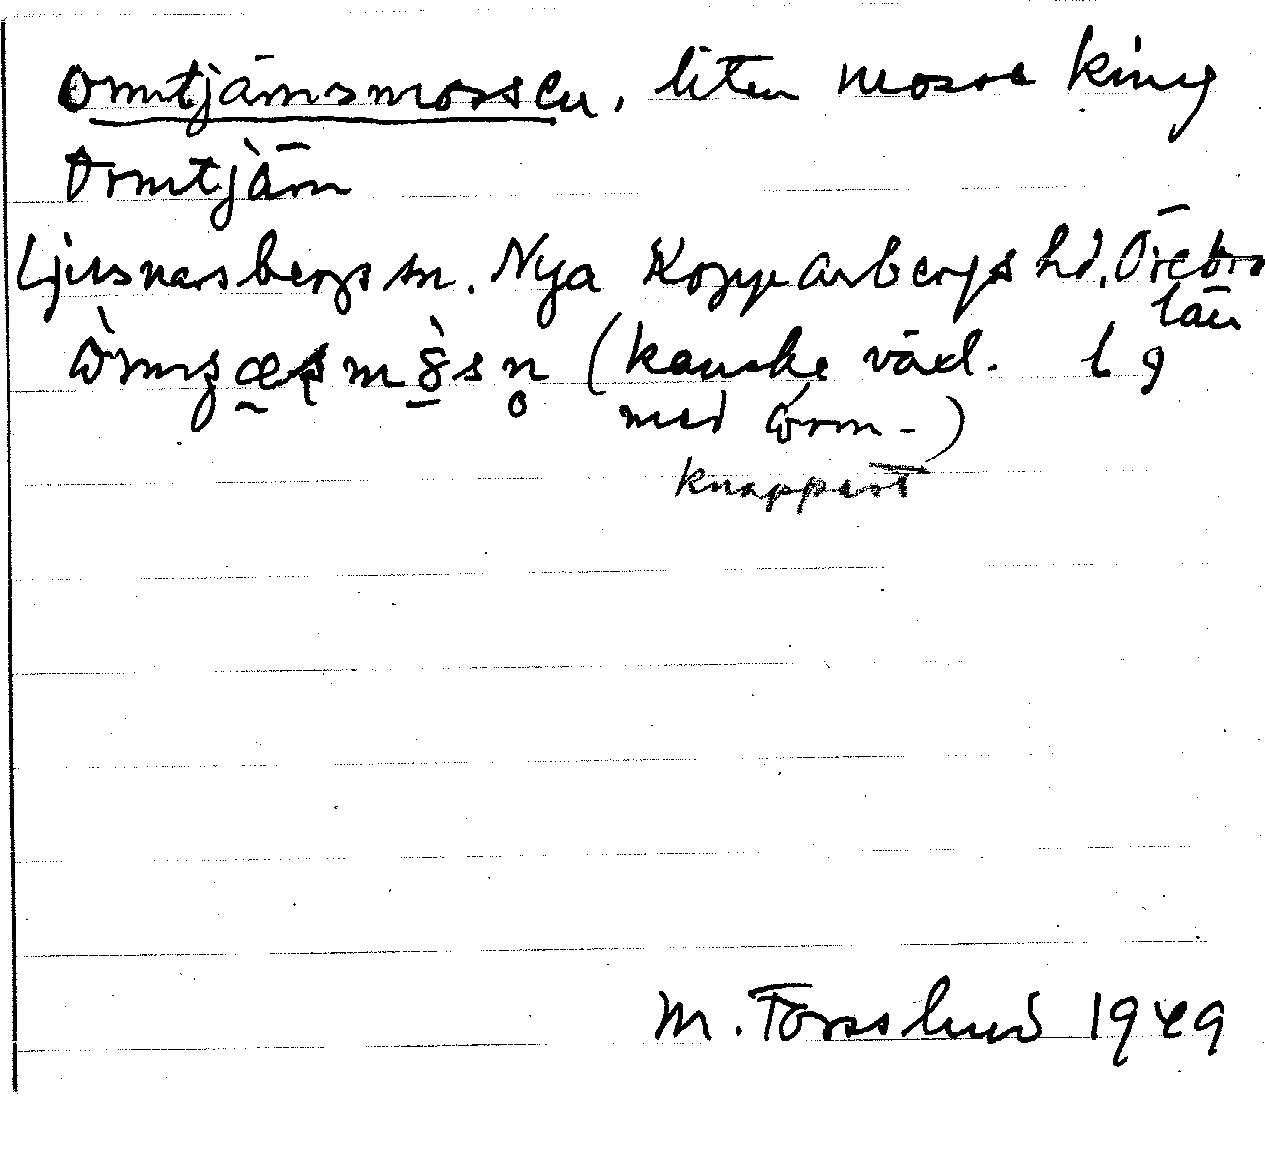 Ormtjärnsmossen, liten mosse kring
Ormtjärn
Ljusnarsbergs sn. Nya Kopparbergs hd. Örebro
län
(kanske växl. l 9
med orm-)
knappast
M. Forsslund 1949